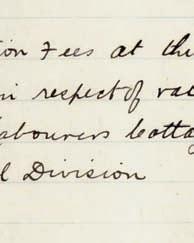 ion Fees at the
in respect of va
Labourers Cotta
l Division